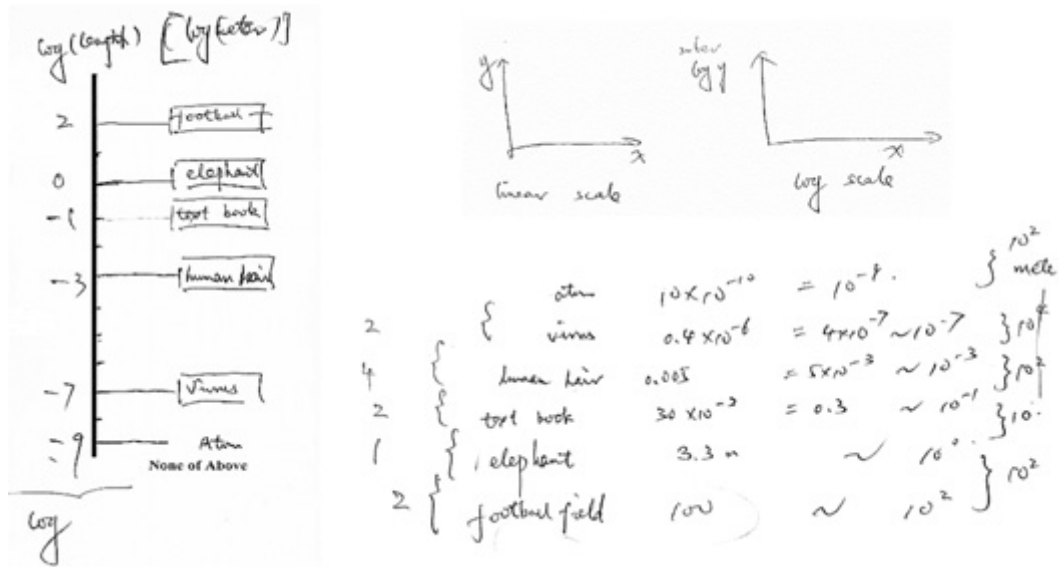 log(length) [log(meter)]
2 football f
0 elephant
-1 text book
-3 human hair
-7 virus
-9 Atom
None of Above
log
y
x
linear scale
log y
x
log scale
atom 10×10⁻¹⁰ = 10⁻⁹. } 10²
2 { virus 0.4×10⁻⁶ = 4×10⁻⁷ ~10⁻⁷ }
4 { human hair 0.005 = 5×10⁻³ ~10⁻³ } 10²
2 { text book 30×10⁻² = 0.3 ~10⁻¹ } 10
1 { elephant 3.3 m ~ 10⁰
2 { football field 100 ~ 10² } 10²